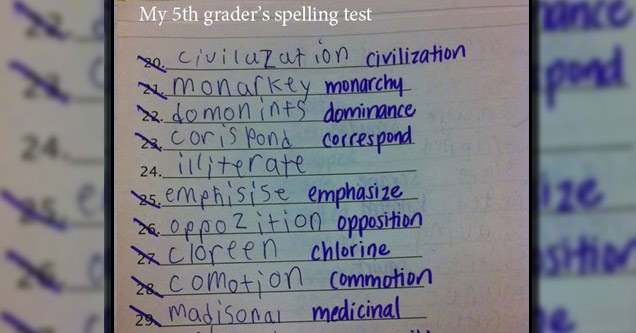 My 5th grader's spelling test
20. civilazation civilization
21. monarkey monarchy
22. domonints dominance
23. corispond correspond
24. illiterate
25. emphisise emphasize
26. oppozition opposition
27. cloreen chlorine
28. comotion commotion
29. madisonal medicinal